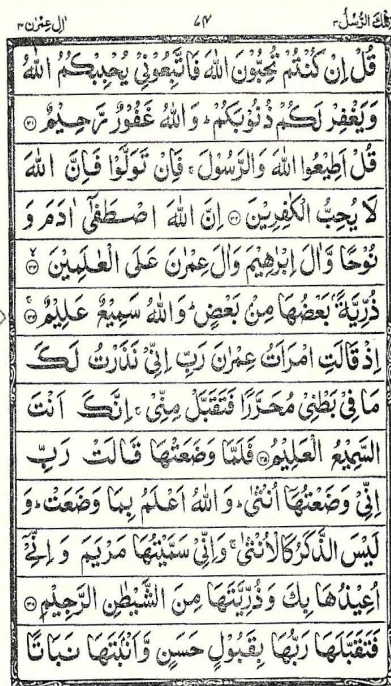 تِلْكَ الرُّسُلُ ٣ ٧٤ اٰلِ عِمْرٰن ٣
قُلْ اِنْ كُنْتُمْ تُحِبُّوْنَ اللّٰهَ فَاتَّبِعُوْنِيْ يُحْبِبْكُمُ اللّٰهُ
وَيَغْفِرْ لَكُمْ ذُنُوْبَكُمْ ؕ وَاللّٰهُ غَفُوْرٌ رَّحِيْمٌ ۝۳۱
قُلْ اَطِيْعُوا اللّٰهَ وَالرَّسُوْلَ ۚ فَاِنْ تَوَلَّوْا فَاِنَّ اللّٰهَ
لَا يُحِبُّ الْكٰفِرِيْنَ ۝۳۲ اِنَّ اللّٰهَ اصْطَفٰٓى اٰدَمَ وَ
نُوْحًا وَّاٰلَ اِبْرٰهِيْمَ وَاٰلَ عِمْرٰنَ عَلَى الْعٰلَمِيْنَ ۝۳۳
ذُرِّيَّةًۢ بَعْضُهَا مِنْۢ بَعْضٍ ؕ وَاللّٰهُ سَمِيْعٌ عَلِيْمٌ ۝۳۴
اِذْ قَالَتِ امْرَاَتُ عِمْرٰنَ رَبِّ اِنِّيْ نَذَرْتُ لَكَ
مَا فِيْ بَطْنِيْ مُحَرَّرًا فَتَقَبَّلْ مِنِّيْ ۚ اِنَّكَ اَنْتَ
السَّمِيْعُ الْعَلِيْمُ ۝۳۵ فَلَمَّا وَضَعَتْهَا قَالَتْ رَبِّ
اِنِّيْ وَضَعْتُهَاۤ اُنْثٰى ؕ وَاللّٰهُ اَعْلَمُ بِمَا وَضَعَتْ ؕ وَ
لَيْسَ الذَّكَرُ كَالْاُنْثٰى ۚ وَاِنِّيْ سَمَّيْتُهَا مَرْيَمَ وَاِنِّيْۤ
اُعِيْذُهَا بِكَ وَذُرِّيَّتَهَا مِنَ الشَّيْطٰنِ الرَّجِيْمِ ۝۳۶
فَتَقَبَّلَهَا رَبُّهَا بِقَبُوْلٍ حَسَنٍ وَّاَنْۢبَتَهَا نَبَاتًا